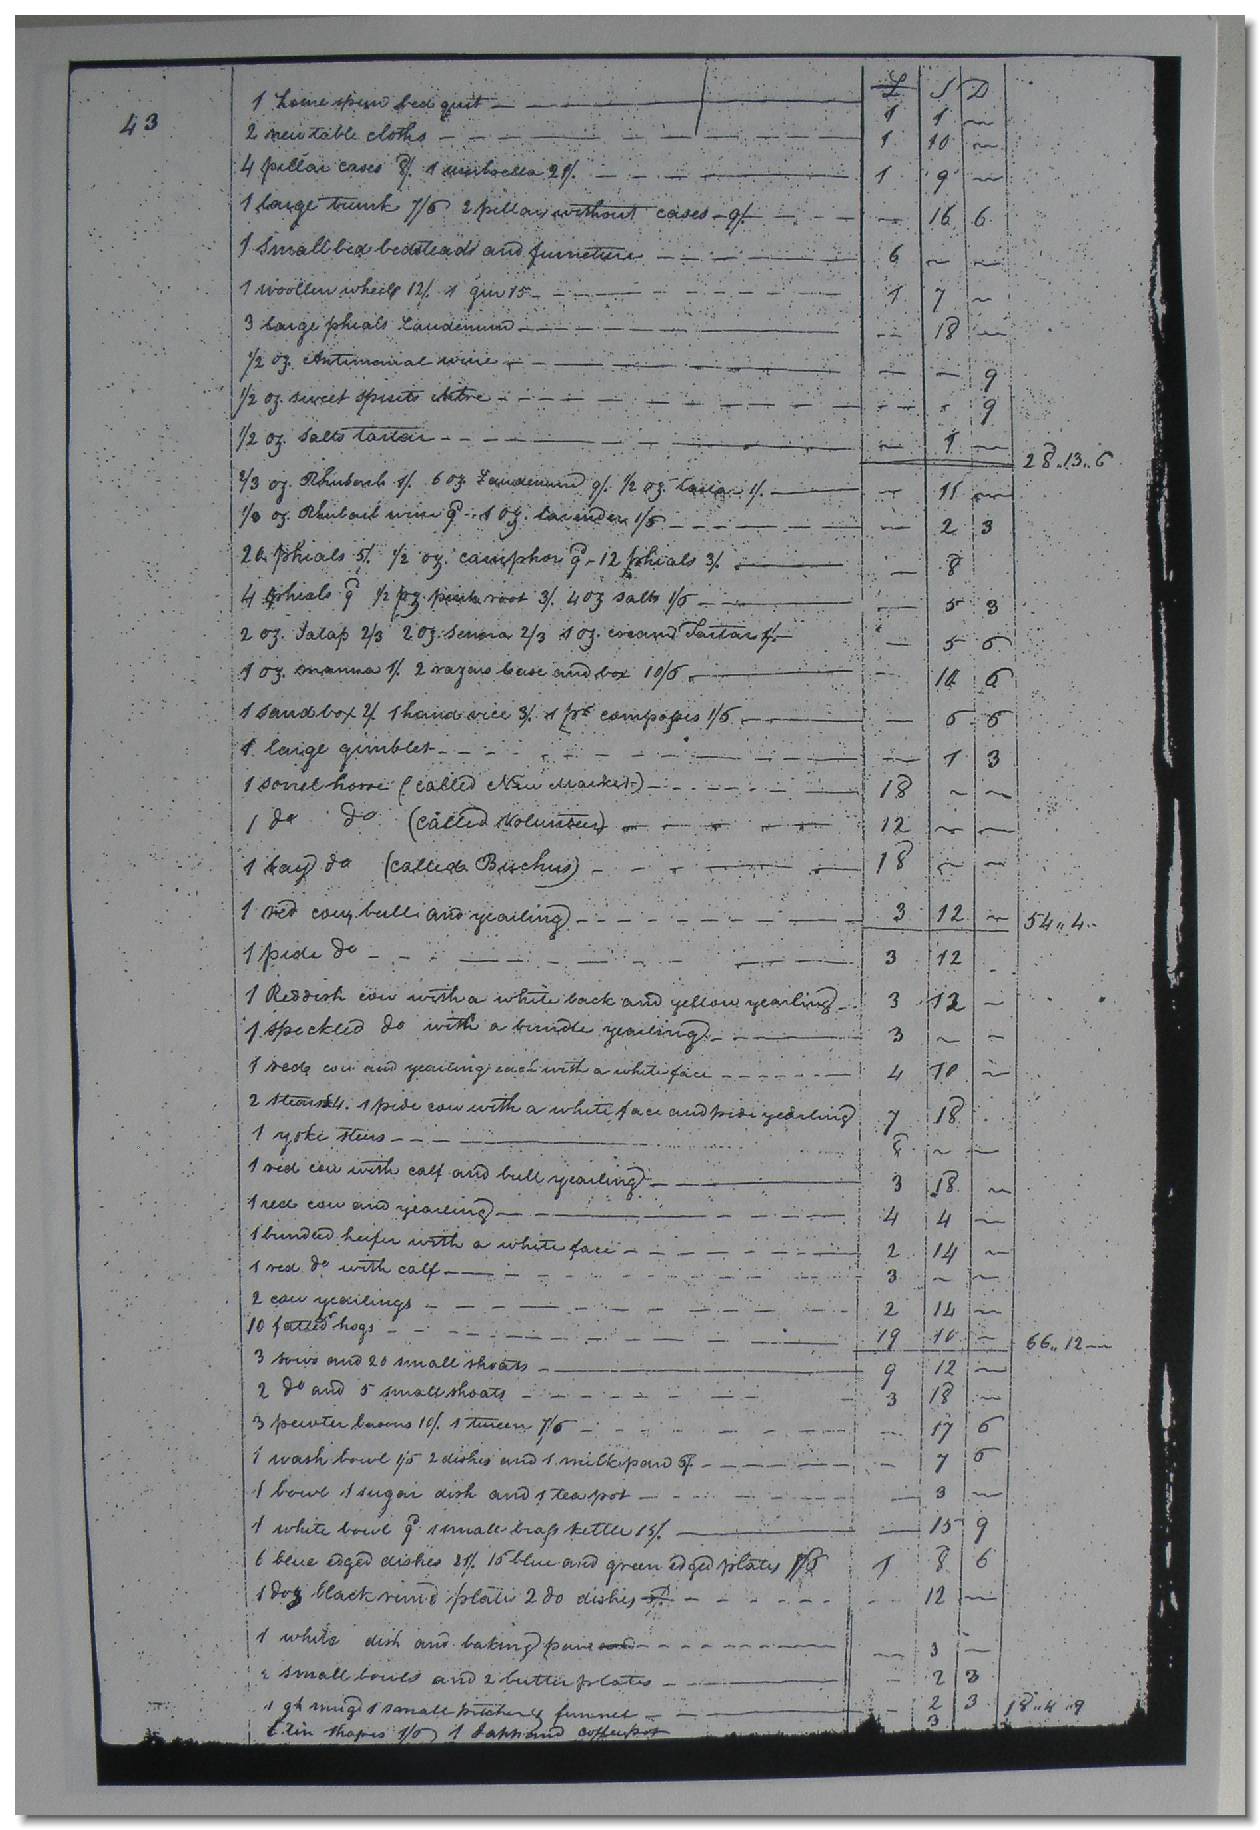 43
£ S D
1 home spun bed quit 1 1 ~
2 new table cloths 1 10 ~
4 pillar cases 8/. 1 umbrella 21/. 1 9 ~
1 large trunk 7/6 2 pillars without cases 9/. ~ 16 6
1 Small bed bedsteads and furneture 6 ~ ~
1 woollen wheele 12/. 1 gun 15 1 7 ~
3 large phials Laudenum ~ 18 ~
1/2 oz. Antimonial wine ~ ~ 9
1/2 oz sweet spirits nitre 9
1/2 oz. Salts tartar ~ 1 ~ 28..13..6
2/3 oz. Rhubarb 1/. 6 oz Laudenum 9/. 1/2 oz. tartar 1/. ~ 11 ~
1/8 oz. Rhubarb wine 9d 1 oz. lavender 1/6 ~ 2 3
20 phials 5/. 1/2 oz camphor 9d 12 phials 3/. ~ 8
4 phials 9d 1/2 oz. root 3/. 4 oz salts 1/6 ~ 5 3
2 oz. Jalap 2/3 2 oz. Senna 2/3 1 oz. cream Tartar 1/. ~ 5 6
1 oz. manna 1/. 2 razors case and box 10/6 11 6
1 sand box 2/. 1 hand vice 3/. 1 pr compasses 1/6 ~ 6 6
1 large gimblet ~ 1 3
1 sorrel horse (called New Market) 18 ~ ~
1 do do (called Volunteer) 12 ~ ~
1 bay do (called Bachus) 18 ~ ~
1 red cow, bull and yearling 3 12 ~ 54..4..
1 pide do 3 12
1 Reddish cow with a white back and yellow yearling 3 12 ~
1 speckled do with a brindle yearling 3 ~ ~
1 rede cow and yearling each with a white face 4 10 ~
2 stears £4. 1 pide cow with a white face and pide yearling 7 18
1 yoke steers 8 ~ ~
1 red cow with calf and bull yearling 3 18 ~
1 rede cow and yearling 4 4 ~
1 brinded heifer with a white face 2 14 ~
1 red do with calf 3 ~ ~
2 cow yearlings 2 14 ~
10 fatted hogs 19 10 ~ 66..12 ~
3 sows and 20 small shoats 9 12 ~
2 do and 5 small shoats 3 18 ~
3 pewter basons 10/. 1 tureen 7/6 ~ 17 6
1 wash bowl 1/6 2 dishes and 1 milk pan 6/. ~ 7 6
1 bowl 1 sugar dish and 1 tea pot 3 ~
1 white bowl 9d small brass kettle 15/. 15 9
6 blue edged dishes 21/. 15 blue and green edged plates 7/6 1 8 6
1 doz black rim'd plate 2 do dishes 12 ~
1 white dish and baking pane ~ 3 ~
2 small bowls and 2 butter plates 2 3
1 qt mug 1 small pitcher & funnel 2 3 18..4..9
6 tin shapes 1/6 1 coffee pot 3